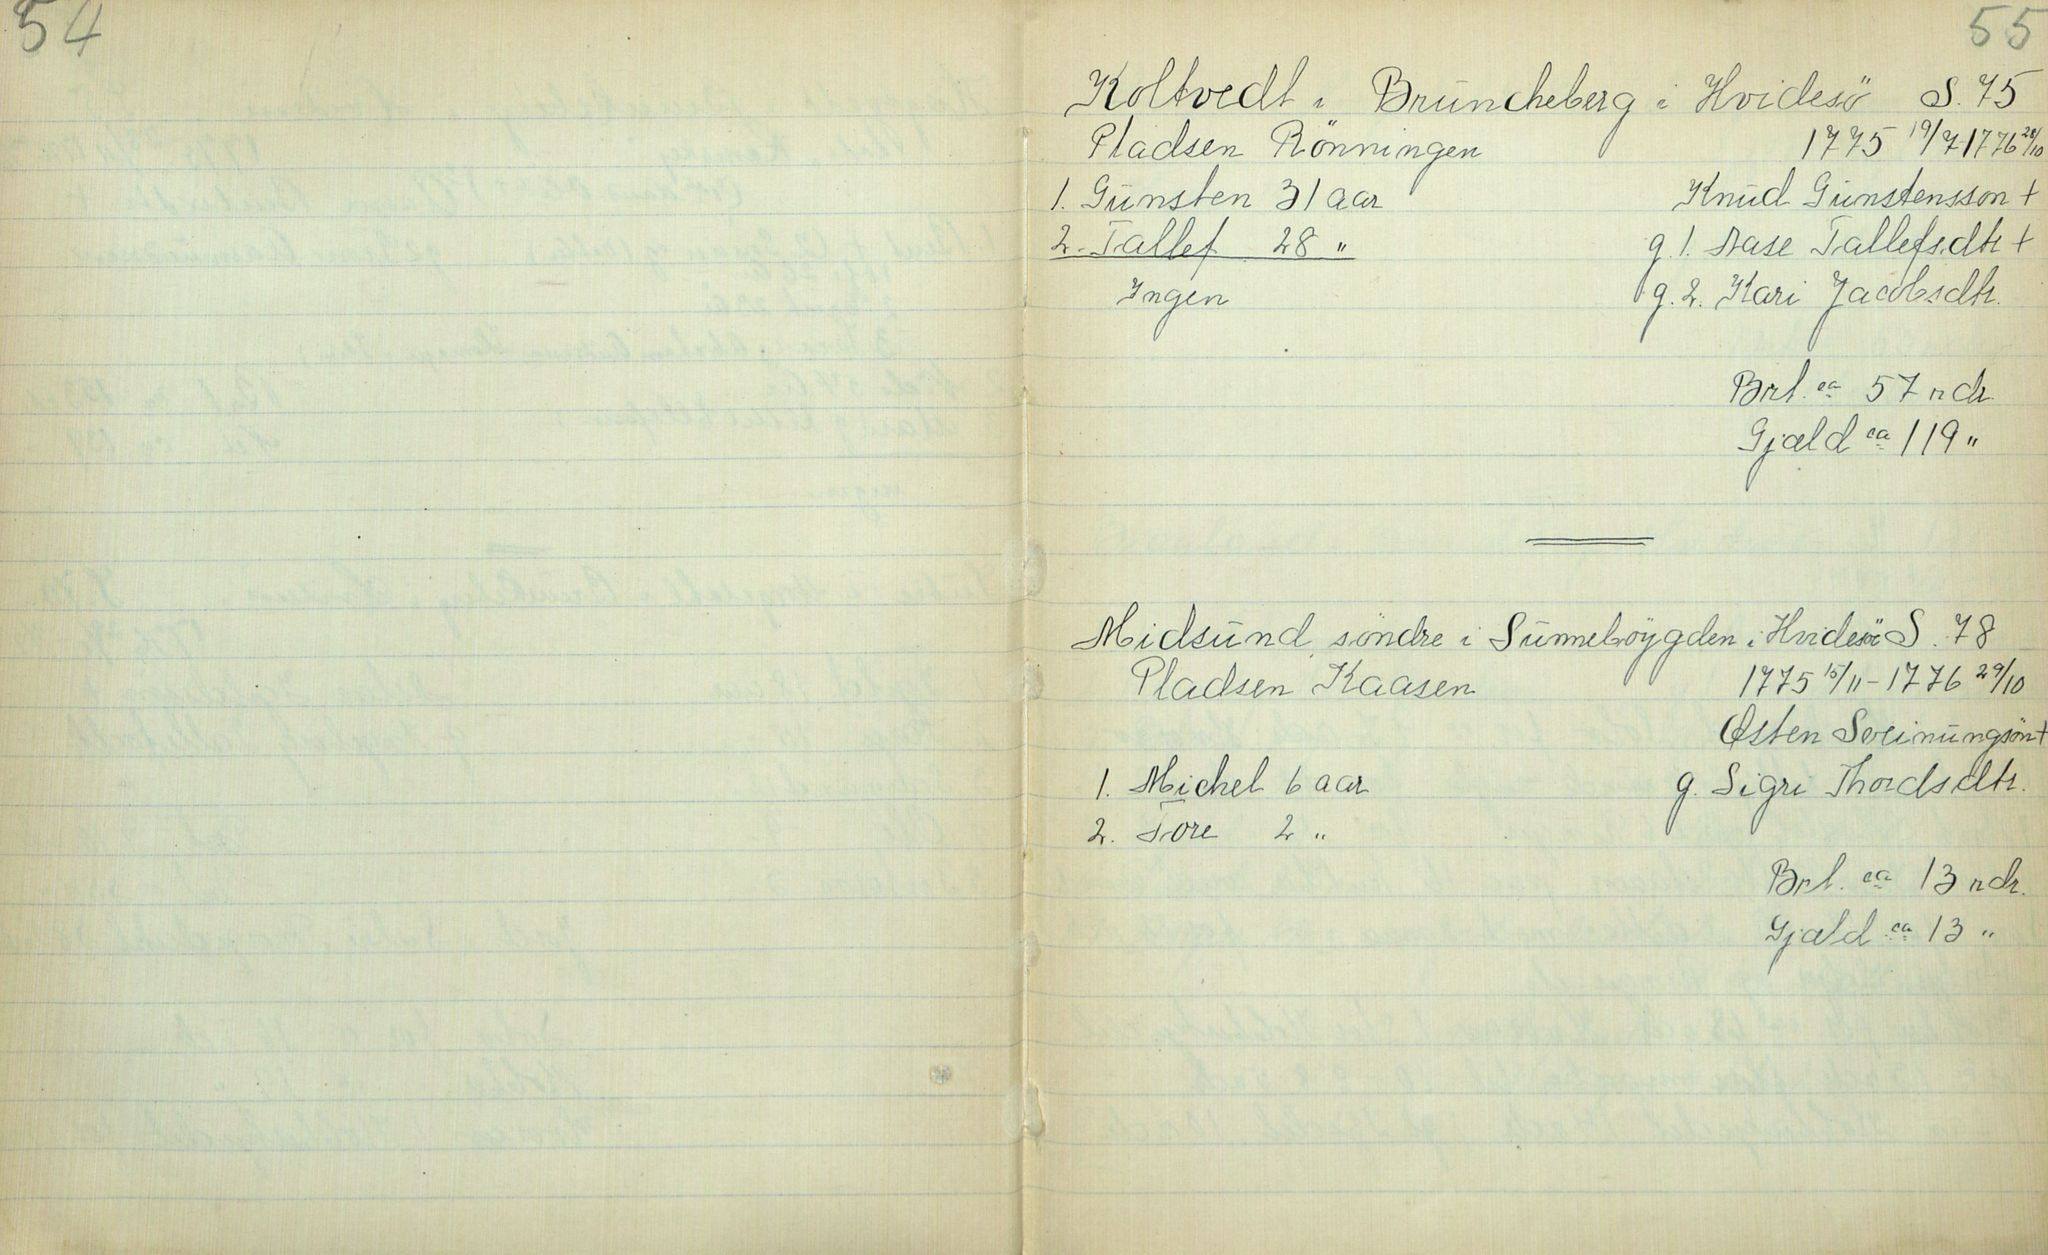 54
55
Koltvedt i Brüncheberg i Hvidesö S. 75
Pladsen Rönningen 1775 19/7 1776 28/10
1. Günsten 31 aar Knüd Günstensson +
2. Tallef 28 " g. 1. Aase Tallefsdtr +
Ingen g. 2. Kari Jacobsdtr.
Brl. ca 57 rdr.
Gjæld ca 119 "
Midsünd söndre i Sünneböygden i Hvidesö S. 78
Pladsen Kaasen 1775 15/11 - 1776 29/10
Østen Sveinüngsön +
1. Michel 6 aar g. Sigri Thordsdtr.
2. Tore 2 "
Brl. ca 13 rdr.
Gjæld ca 13 "